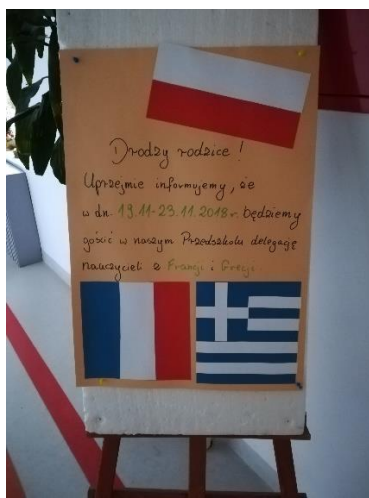 Drodzy rodzice!
Uprzejmie informujemy, że
w dn. 19.11-23.11.2018r. będziemy
gościć w naszym Przedszkolu delegację
nauczycieli z Francji i Grecji